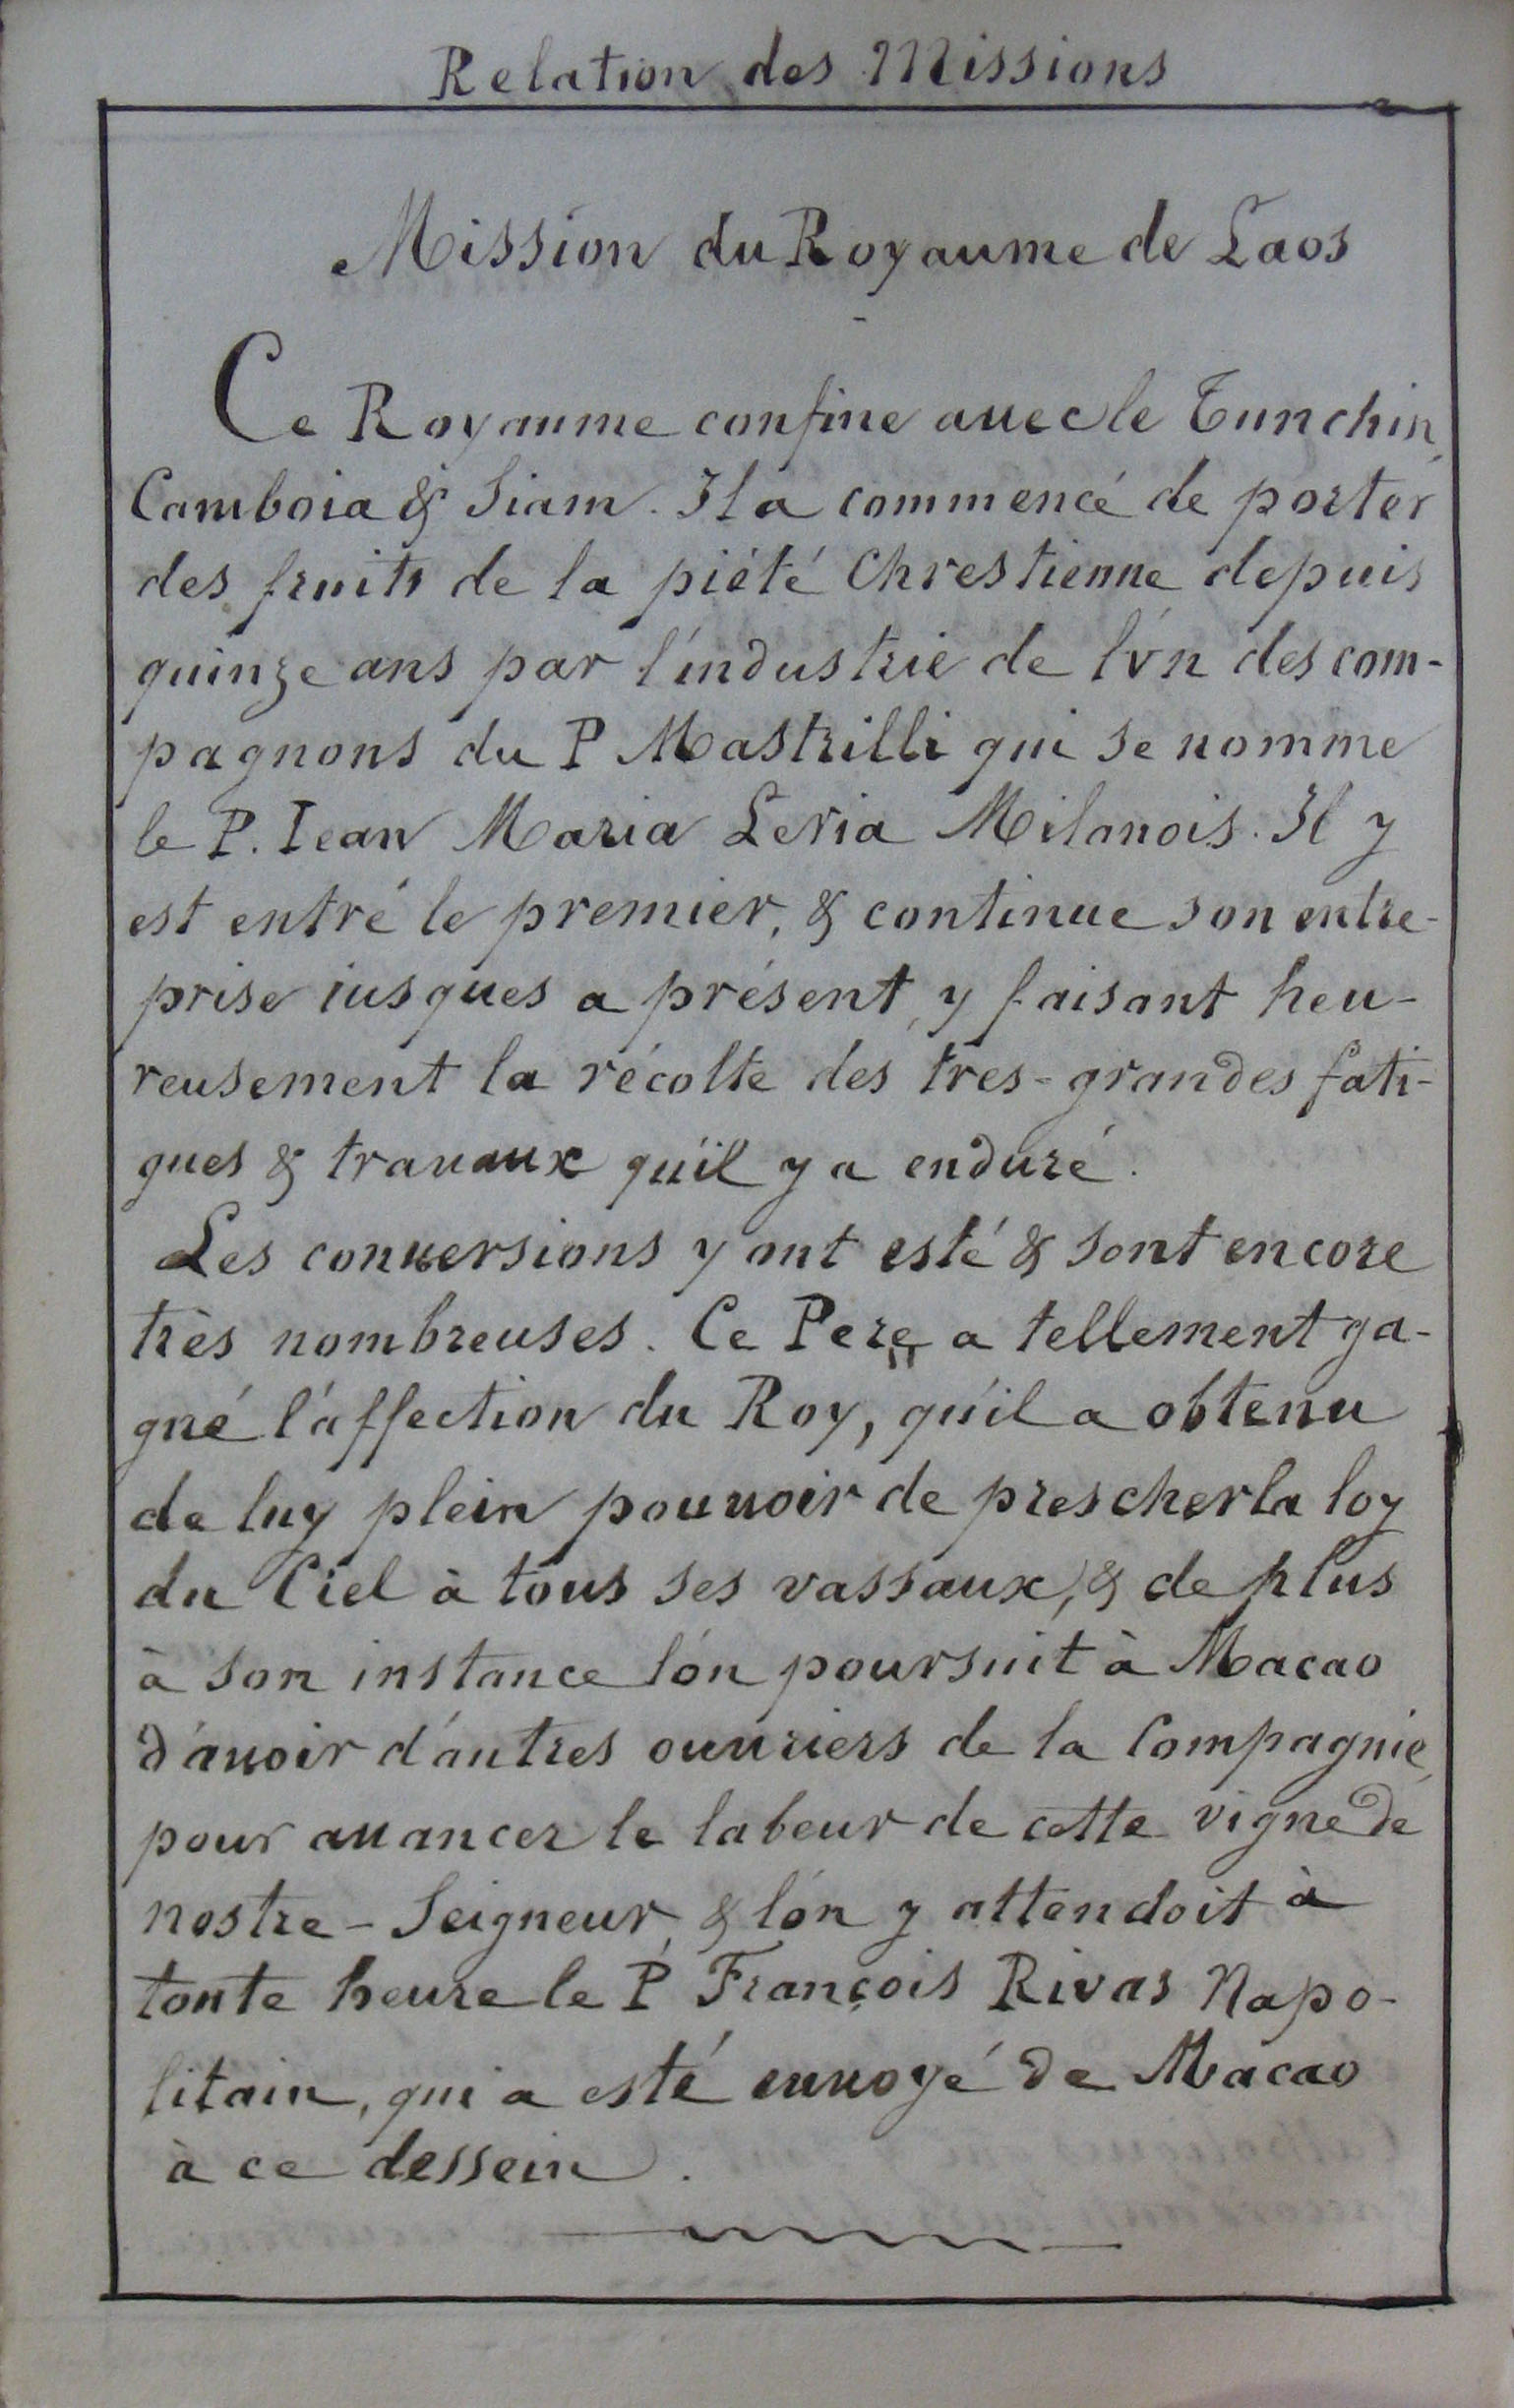 Relation des Missions
Mission du Royaume de Laos
Ce Royaume confine auec le Tunchin,
Camboia & Siam. Il a commencé de porter
des fruits de la piété Chrestienne depuis
quinze ans par l'industrie de l'vn des com-
pagnons du P Mastrilli qui se nomme
le P. Iean Maria Leria Milanois. Il y
est entré le premier, & continue son entre-
prise iusques a présent, y faisant heu-
reusement la récolte des tres-grandes fati-
gues & trauaux qu'il y a enduré.
Les conuersions y ont esté & sont encore
très nombreuses. Ce Pere a tellement ga-
gné l'affection du Roy, qu'il a obtenu
de luy plein pouuoir de prescher la loy
du Ciel à tous ses vassaux, & de plus
à son instance l'on poursuit à Macao
d'auoir d'autres ouuriers de la Compagnie,
pour auancer le labeur de cette vigne de
nostre-Seigneur, & l'on y attendoit à
toute heure le P François Rivas Napo-
litain, qui a esté enuoyé de Macao
à ce dessein.